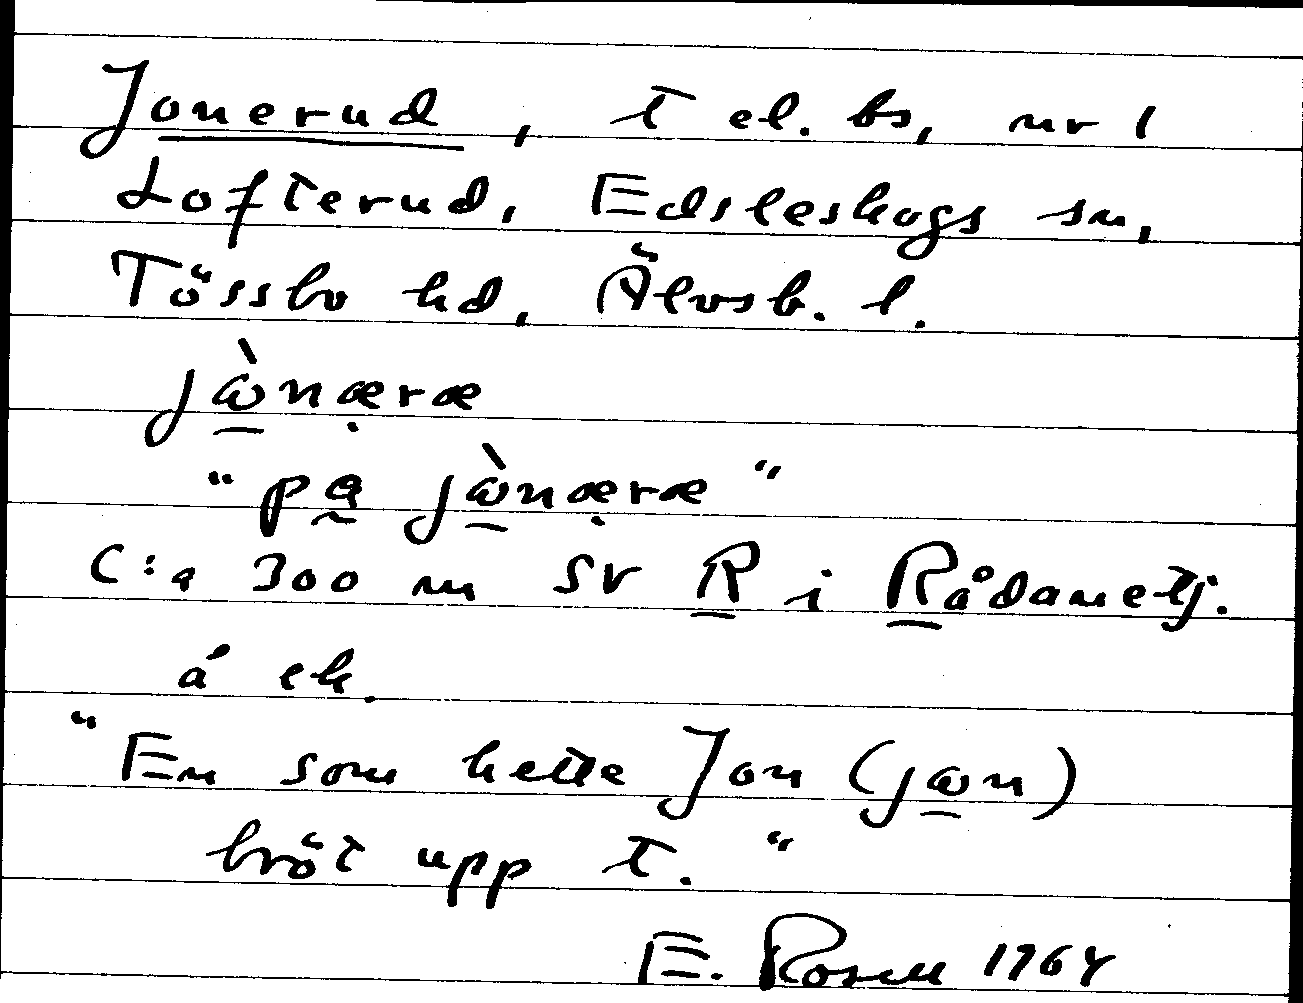 Jonerud, t el. bs, nr 1
Lofterud, Edsleskogs sn,
Tössbo hd, Älvsb. l.
jὼ̲næ̣ræ
"pa̰ jὼ̲næ̣ræ"
C:a 300 m SV R i Rådanetj.
å ek.
"En som hette Jon (jω̲n)
bröt upp t."
E. Rosell 1964